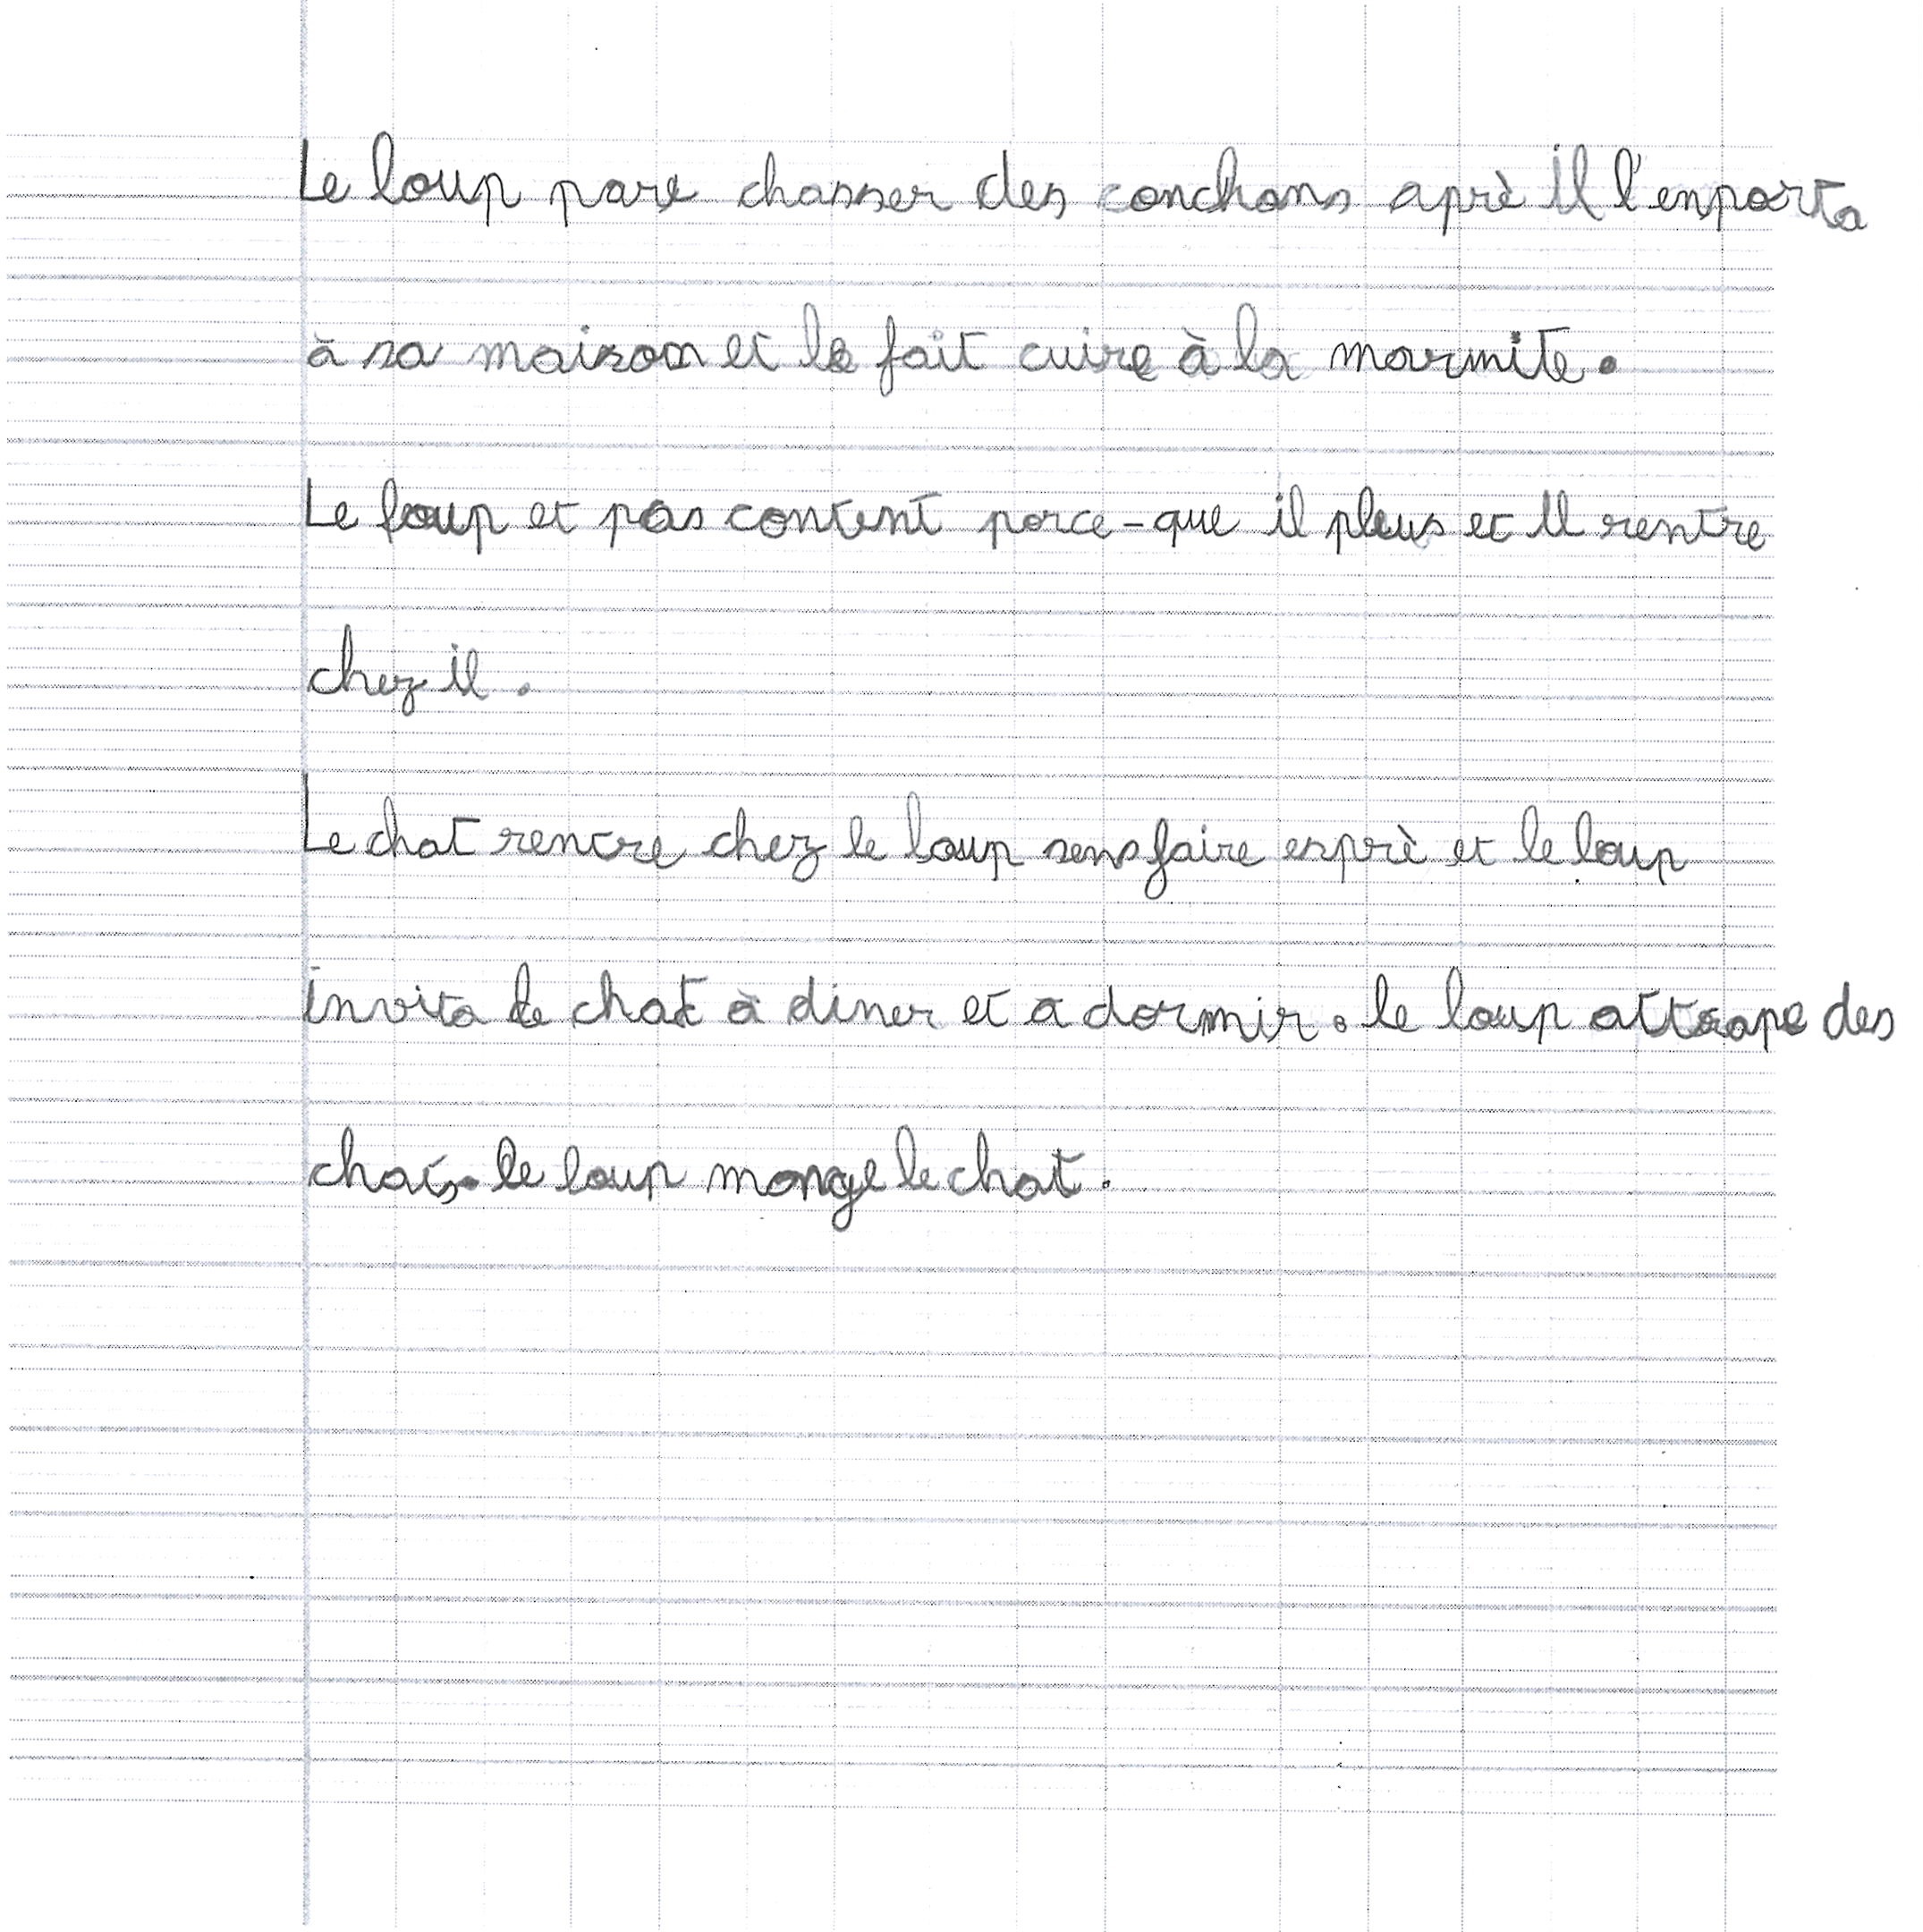 Le loup pare chasser des conchons aprè il l'enporta
à sa maison et le fait cuire à la marmite.
Le loup et pas content parce-que il pleus et il rentre
chez il.
Le chat rentre chez le loup sens faire esprè et le loup
invita le chat à diner et a dormir. le loup attrape des
chats. le loup mange le chat.